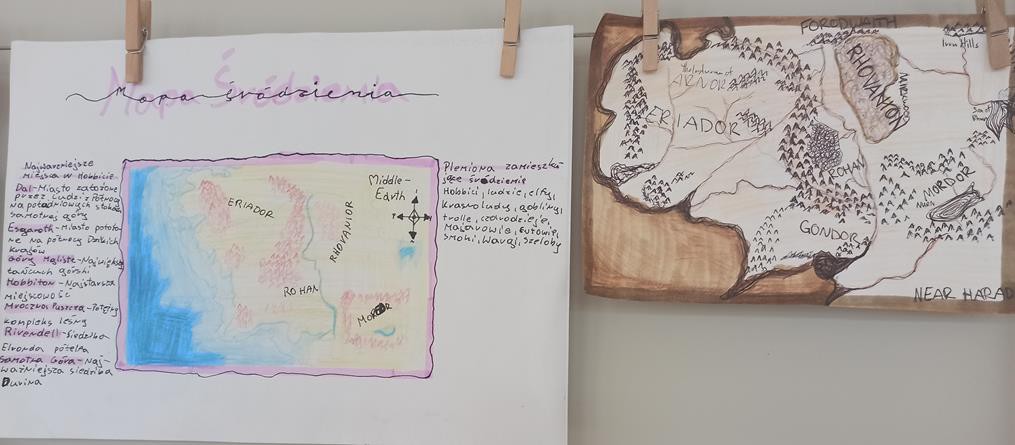 Mapa Śródziemia
Mapa śródziemia
Najważniejsze
miejsca w Hobbicie
Dal-Miasto założone
przez ludzi z Północy
na południowych stokach
samotnej góry
Esgaroth-Miasto położo
ne na północy Dzikich
krajów
Góry Mgliste-Największy
łańcuch górski
Hobbiton-Najstarsza
miejscowość
Mroczna Puszcza-Potężny
kompleks leśny
Rivendell-siedziba
Elronda półelfa
Samotna Góra-Naj-
ważniejsza siedziba
Durina
Middle-
Earth
ERIADOR
RHOVANIOR
ROHAN
MORDOR
Plemiona zamieszku
jące śródziemie
Hobbici, ludzie, elfy,
Krasnoludy, gobliny,
trolle, czarodzieje,
Majarowie, Entowie,
Smoki, Wargi, Szeloby
FORODWAITH
Iron Hills
RHOVANION
MIRKWOOD
ARNOR
ERIADOR
Sea of
ROHAN
MORDOR
Nurn
GONDOR
NEAR HARAD